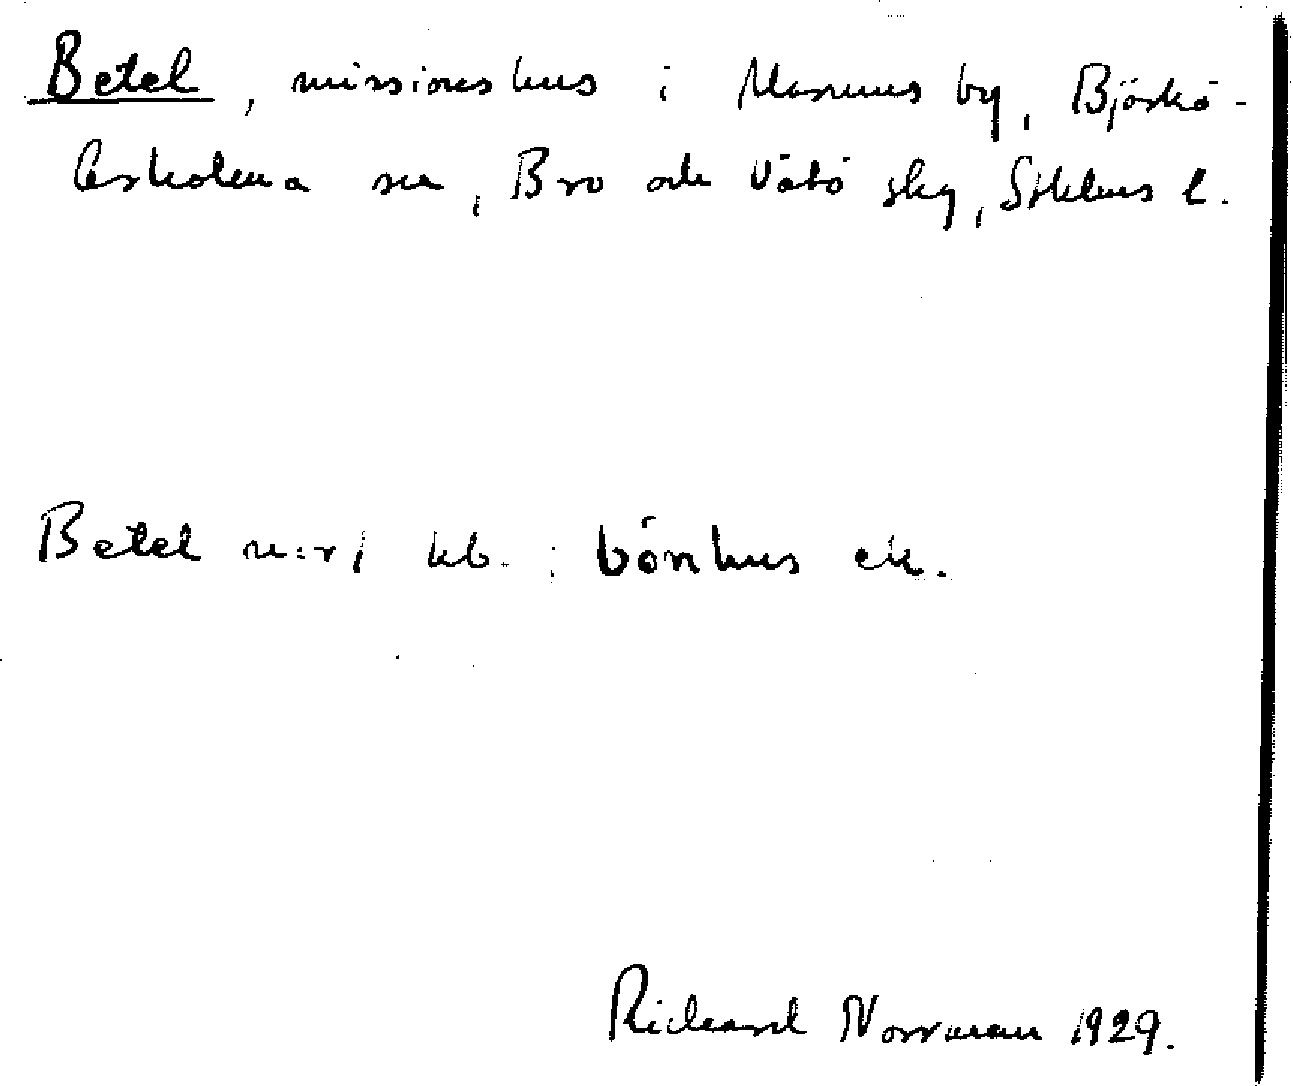 Betel, missionshus i Marums by, Björkö-
Arholma sn, Bro och Vätö skg, Sthlms l.
Betel n:r 1 kb.: bönhus ek.
Richard Norrman 1929.